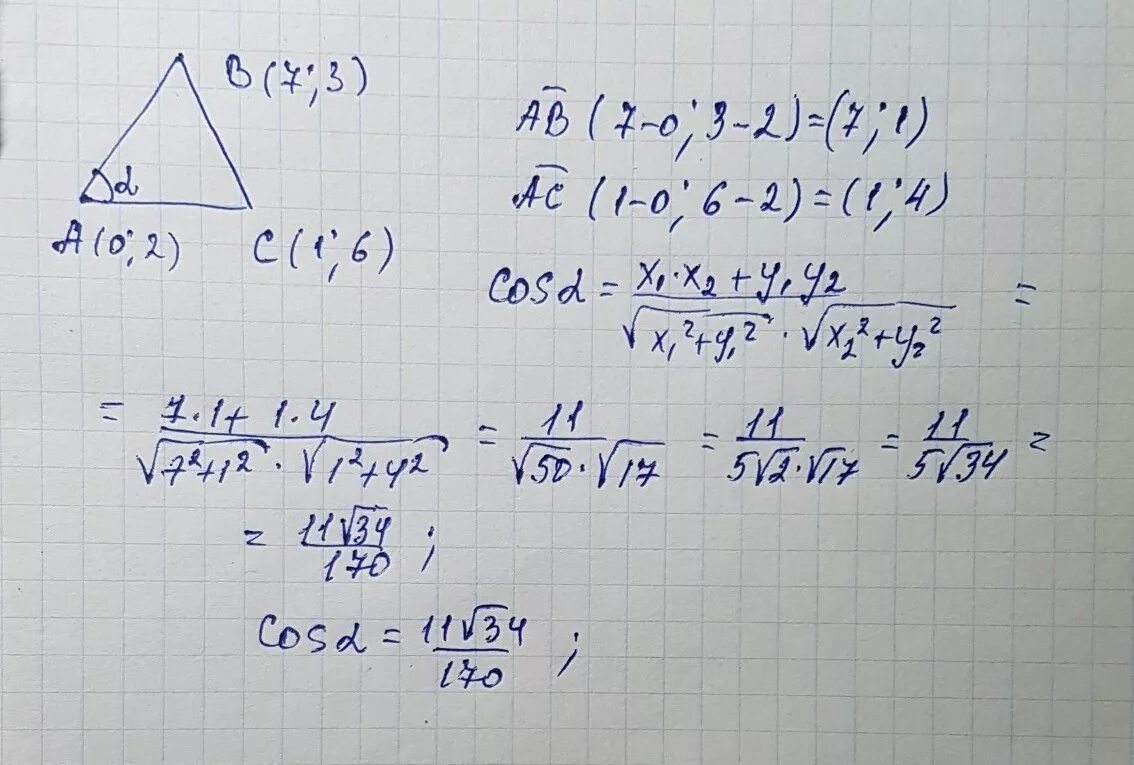 B (7; 3)
α
A (0; 2) C (1; 6)
A̅B̅ (7-0; 3-2) = (7; 1)
A̅C̅ (1-0; 6-2) = (1; 4)
cos α = (x₁·x₂ + y₁ y₂) / (√(x₁² + y₁²) · √(x₂² + y₂²)) =
= (7·1 + 1·4) / (√(7²+1²) · √(1²+4²)) = 11 / (√50 · √17) = 11 / (5√2 · √17) = 11 / (5√34) =
= 11√34 / 170 ;
cos α = 11√34 / 170 ;